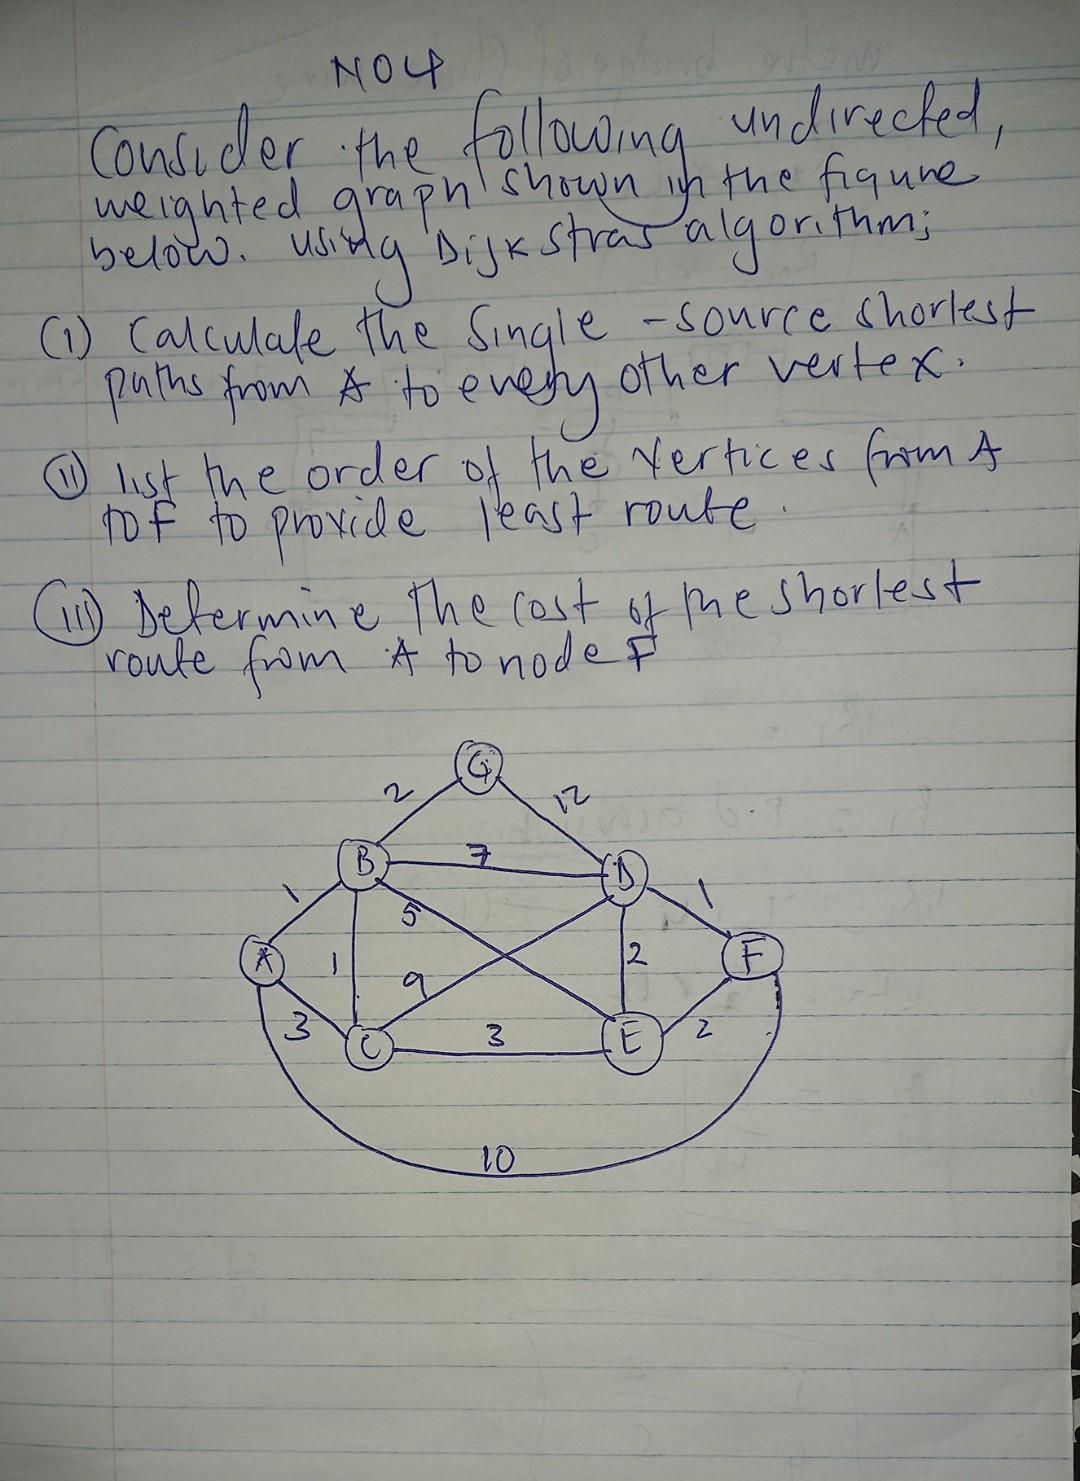 NO4
Consider the following undirected,
weighted graph shown in the figure
below. using Dijkstras algorithm;
(i) Calculate the Single - source shortest
paths from A to every other vertex.
(ii) list the order of the vertices from A
to F to provide least route.
(iii) Determine the cost of the shortest
route from A to node F
G
2 12
B 7 D
1 5 1
A 1 9 2 F
3 C 3 E 2
10